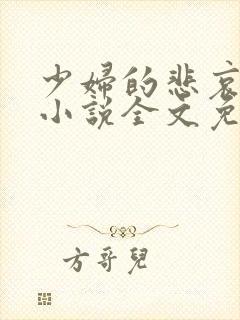 少婦的悲哀
小説全文免
方哥兒